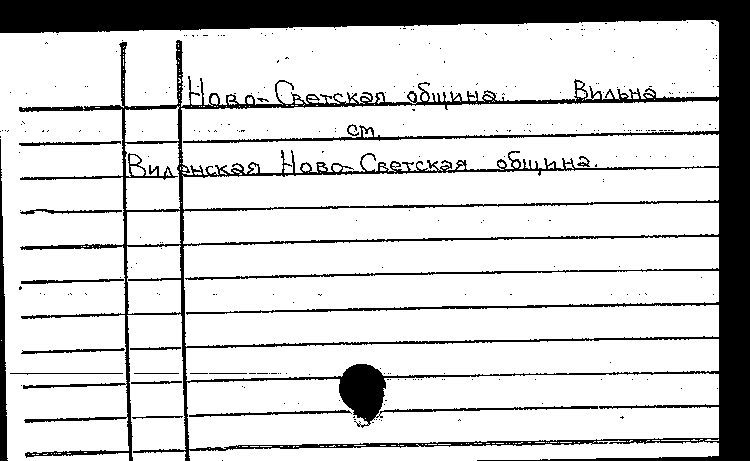 Ново-Светская община. Вильна
см.
Виленская Ново-Светская община.